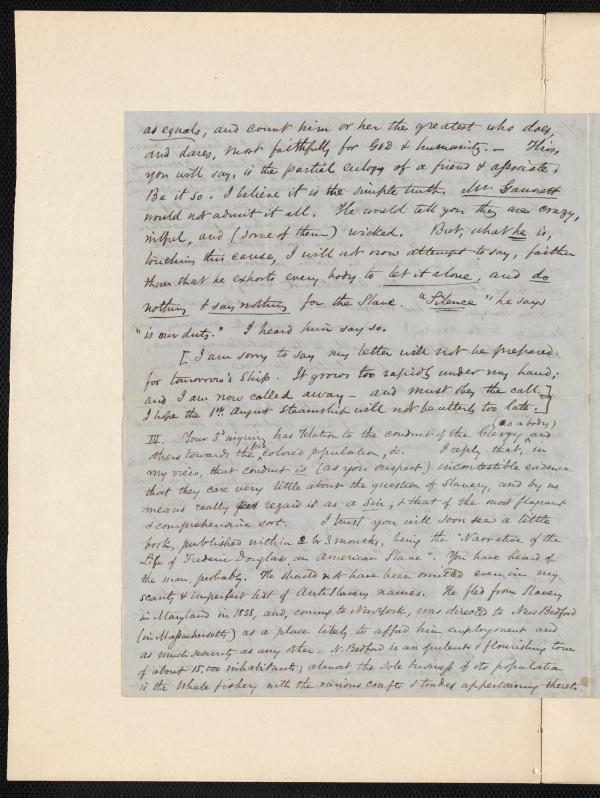 as equals, and count him or her the greatest who does,
and dares, most faithfully for God & humanity. — This,
you will say, is the partial eulogy of a friend & associate;
Be it so. I believe it is the simple truth. Mr. Gannett
would not admit it all. He would tell you they are crazy,
wilful, and (some of them) wicked. But, what he is,
touching this cause, I will not now attempt to say, farther
than that he exhorts every body to let it alone, and do
nothing & say nothing for the Slave. "Silence" he says
"is our duty." I heard him say so.
[I am sorry to say my letter will not be prepared
for tomorrow's Ship. It grows too rapidly under my hand;
and I am now called away — and must obey the call.]
I hope the 1st August Steamship will not be utterly too late.]
(as a body)
III. Your 3d inquiry has relation to the conduct of the Clergy, and
others towards the free colored population, &c. I reply that, in
my view, that conduct is (as you suspect) incontestible evidence
that they care very little about the question of Slavery, and by no
means really regard it as a Sin, & that of the most flagrant
& comprehensive sort. I trust you will soon see a little
book, published within 2 or 3 months, being the "Narrative of the
Life of Frederic Douglass, an American Slave". You have heard of
the man, probably. He should not have been omitted even in my
scanty & imperfect list of AntiSlavery names. He fled from Slavery
in Maryland in 1838, and, coming to New York, was directed to New Bedford
(in Massachusetts) as a place likely to afford him employment and
as much security as any other. N. Bedford is an opulent & flourishing town
of about 15,000 inhabitants; almost the sole business of its population
is the Whale fishery with the various crafts & trades appertaining thereto.